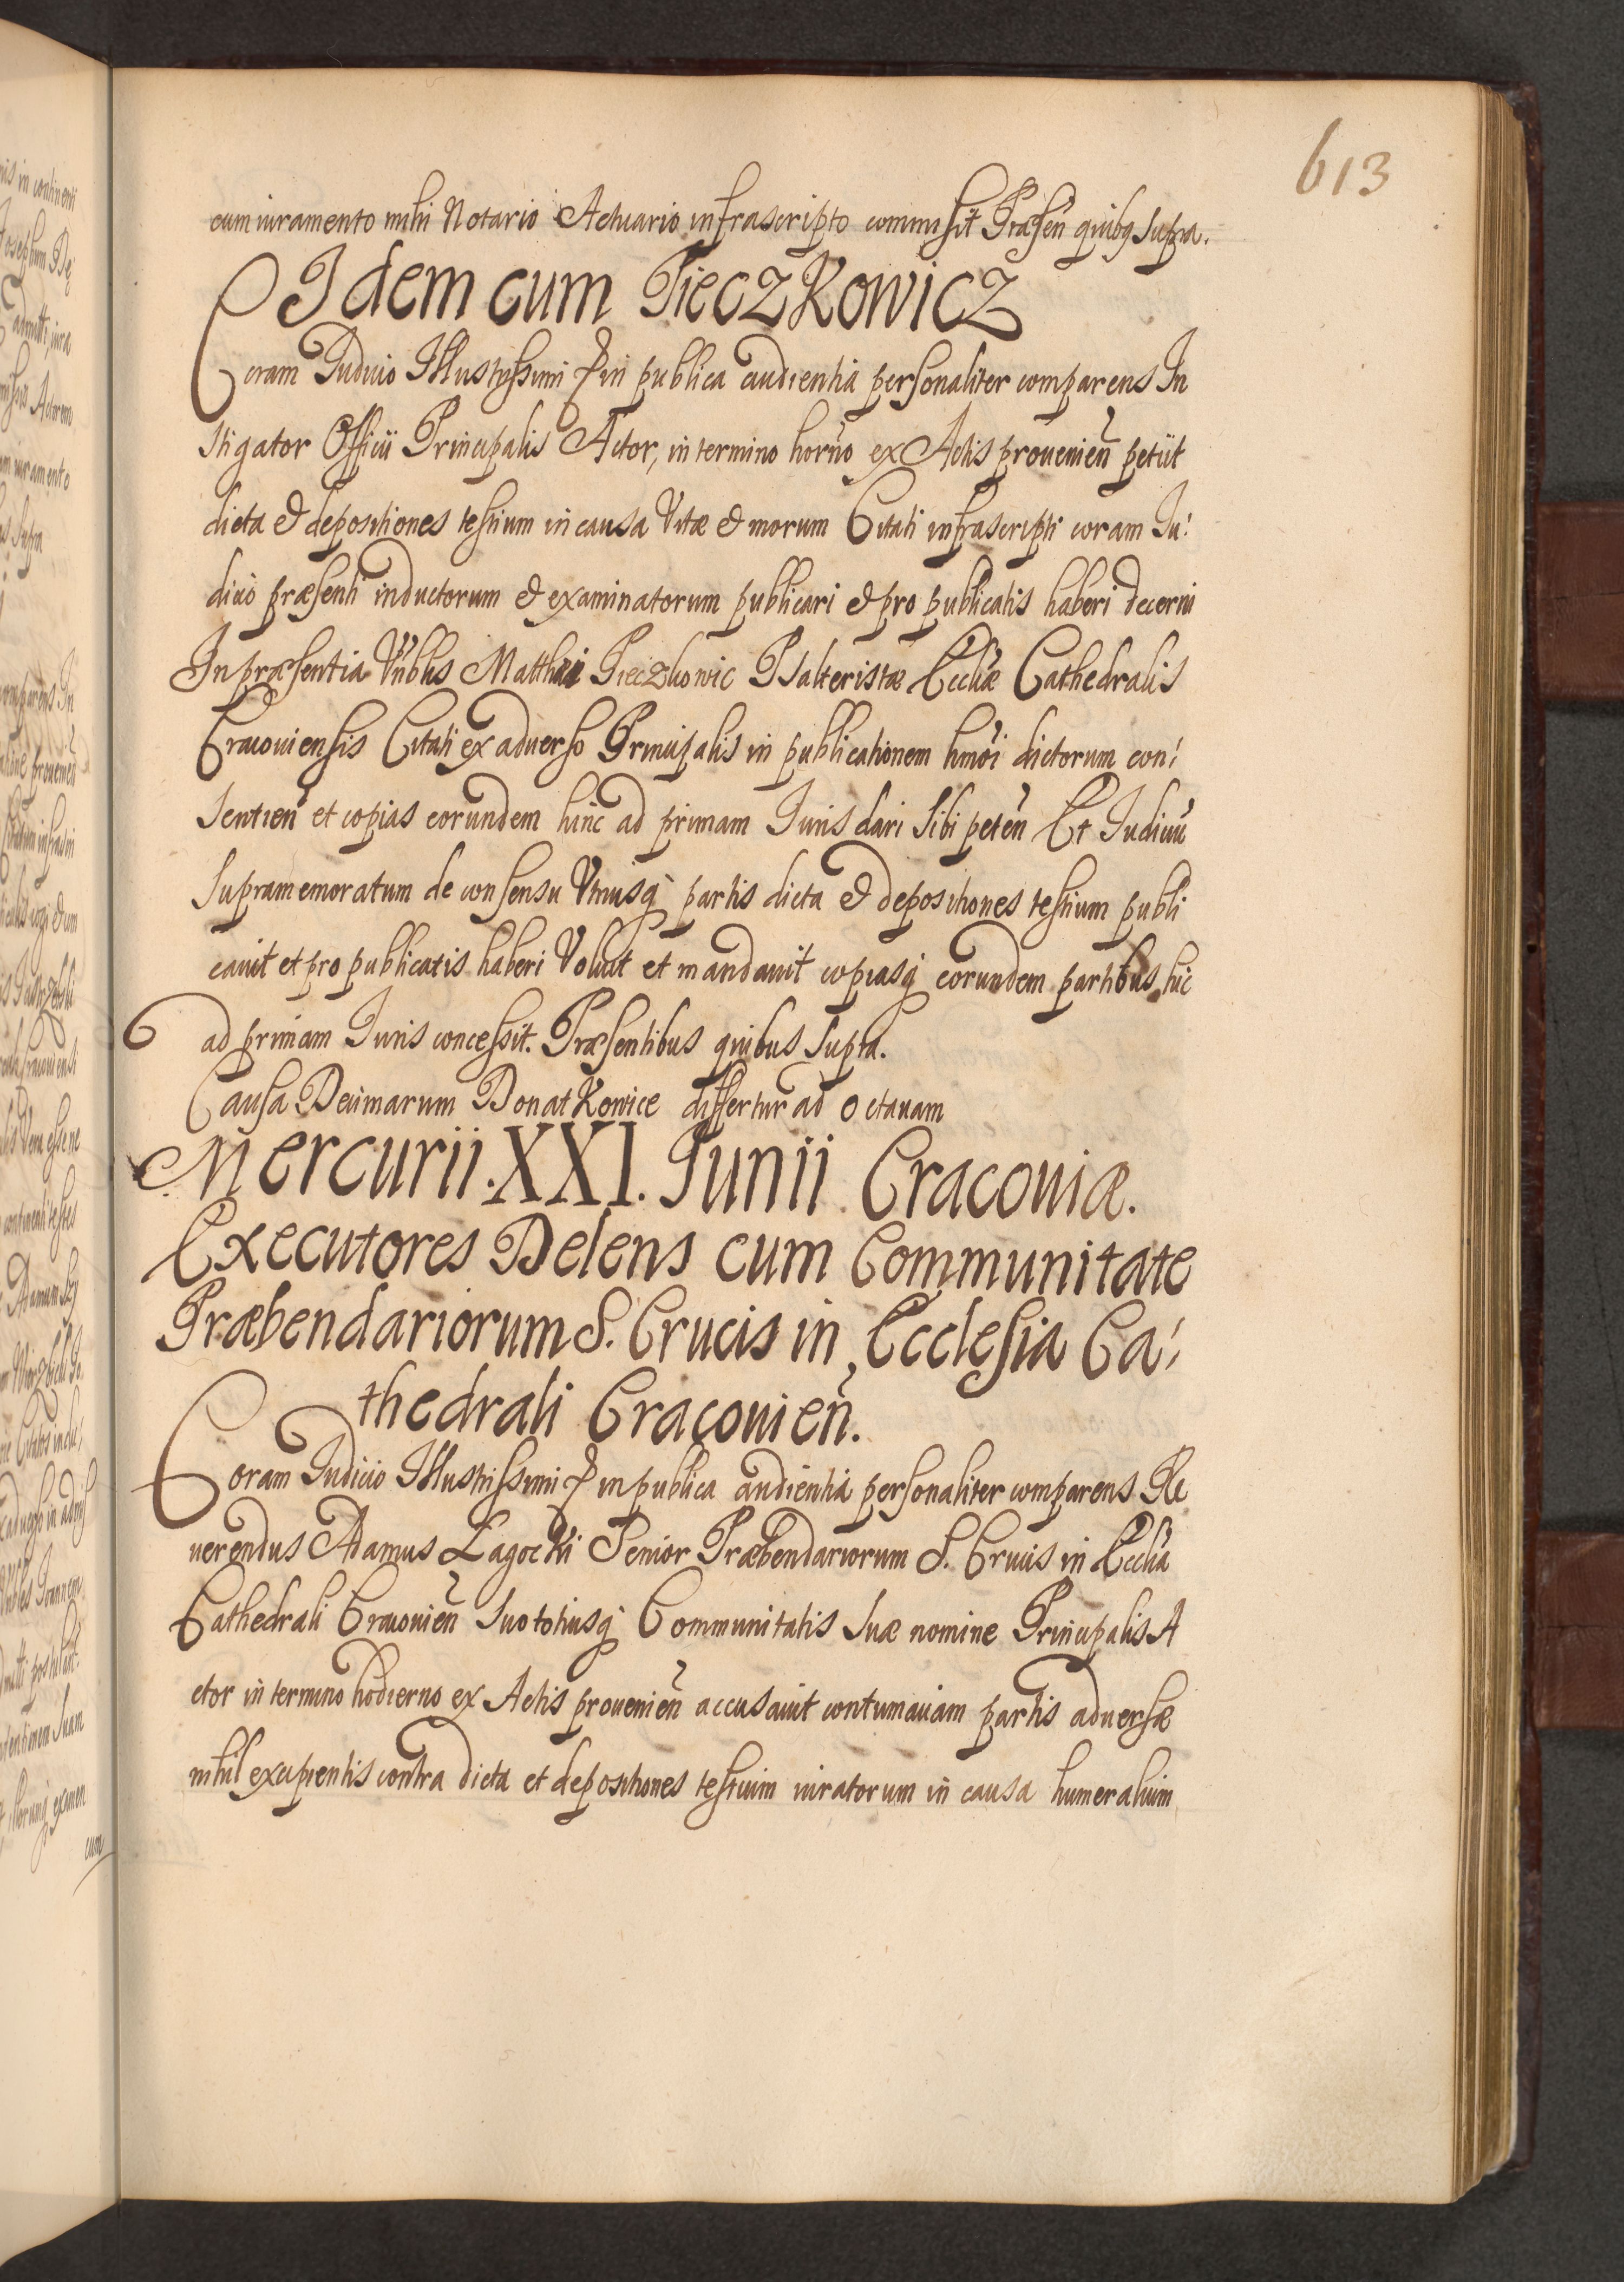 613
cum iuramento mihi Notario Actuario infrascripto commisit Præsen̄ quibq supra.
Idem cum Pieczkowicz
Coram Iudicio Illustrissimi & in publica audientia personaliter comparens In
stigator Officii Principalis Actor, in termino horno ex Actis prouenien̄ petiit
dicta & depositiones testium in causa Vitæ & morum Citati infrascripti coram Iu:
dicio præsenti inductorum & examinatorum publicari & pro publicatis haberi decerni
In præsentia Vnblis Matthæi Pieczkowic Psalteristæ Eccliæ Cathedralis
Cracouiensis Citati ex aduerso Principalis in publicationem hmōi dictorum con:
sentien̄ et copias eorundem hinc ad primam Iuris dari sibi peten̄ Et Iudiciū
supramemoratum de consensu Vtriusq partis dicta & depositiones testium publi
cauit et pro publicatis haberi Voluit et mandauit copiasq eorundem partibus hic
ad primam Iuris concessit. Præsentibus quibus supra.
Causa Decimarum Donatkowice differtur ad octauam
Mercurii. XXI. Iunii Cracouiæ.
Executores Delens cum Communitate
Præbendariorum S. Crucis in Ecclesia Ca:
thedrali Cracouien̄.
Coram Iudicio Illustrissimi & in publica audientia personaliter comparens Re
uerendus Adamus Łagocki Senior Præbendariorum S. Crucis in Ecclia
Cathedrali Cracouien̄ suo totiusq Communitatis suæ nomine Principalis A
ctor in termino hodierno ex Actis prouenien̄ accusauit contumaciam partis aduersæ
nihil excipientis contra dicta et depositiones testium iuratorum in causa humeralium